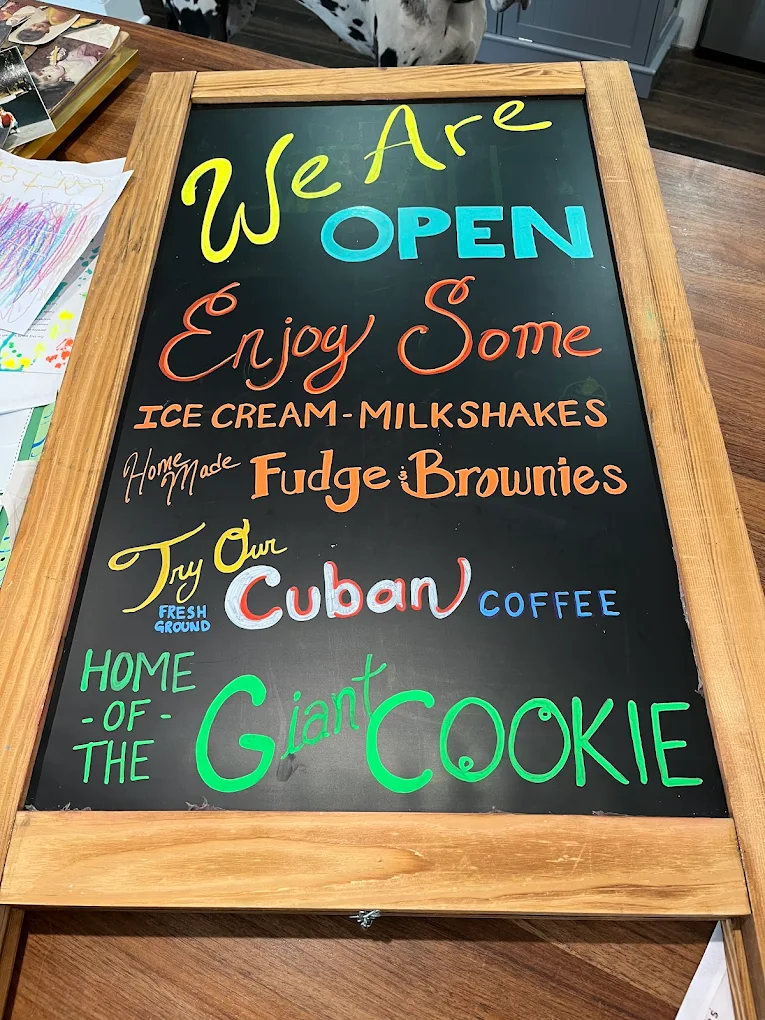 We Are
OPEN
Enjoy Some
ICE CREAM - MILKSHAKES
Home Made Fudge & Brownies
Try Our
FRESH GROUND Cuban COFFEE
HOME
- OF -
THE Giant COOKIE